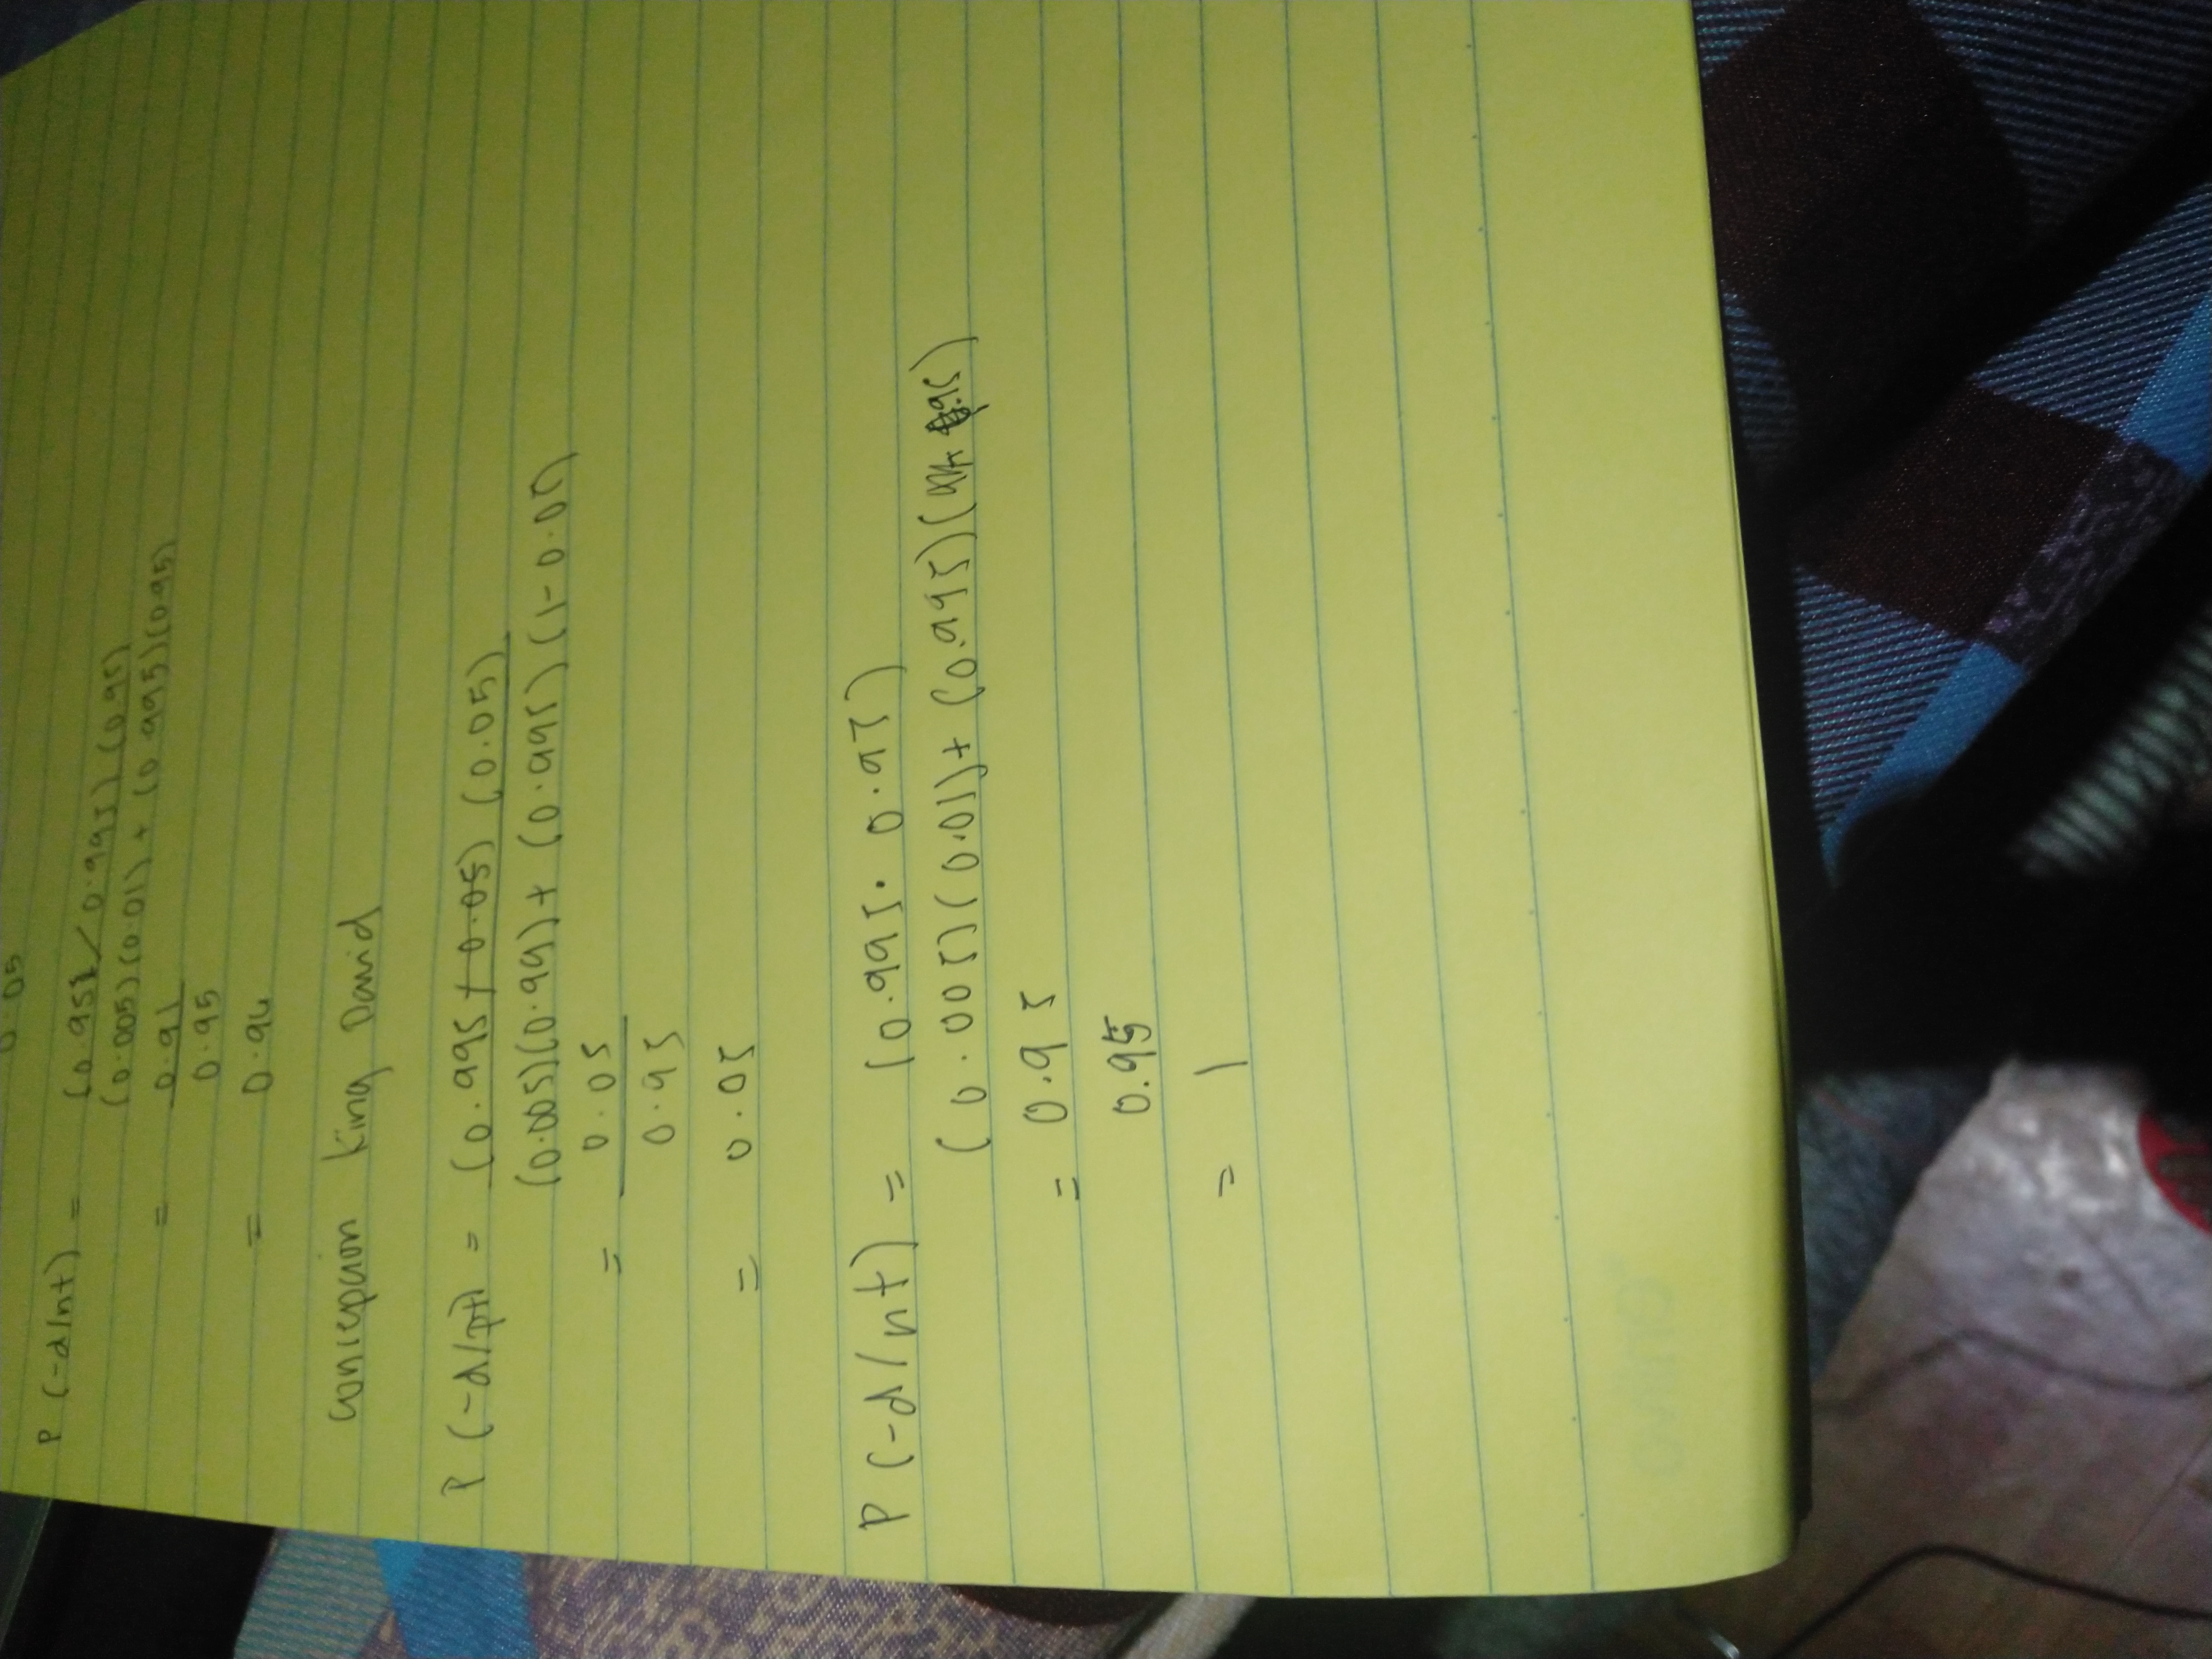 0.05
P (-d/nt) = (0.951/0.995) (0.95)
(0.005)(0.01) + (0.995)(0.95)
= 0.91
0.95
= 0.94
Concepcion King David
P (-d/pt) = (0.995 + 0.05) (0.05)
(0.005)(0.99) + (0.995) (1-0.05)
= 0.05
0.95
= 0.05
P (-d/nt) = (0.995 · 0.95)
(0.005)(0.01) + (0.995)(0.95)
= 0.95
0.95
= 1